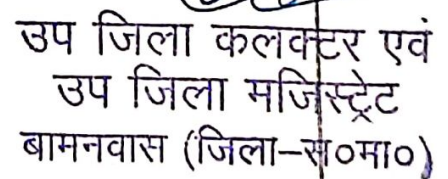 उप जिला कलक्टर एवं
उप जिला मजिस्ट्रेट
बामनवास (जिला–स०मा०)